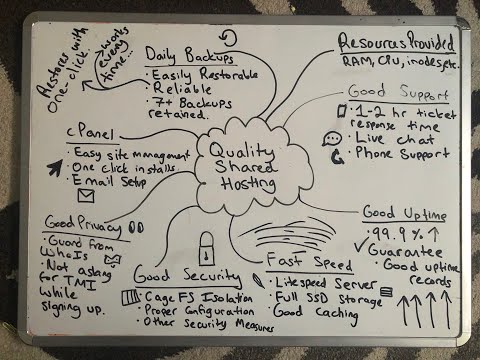 Quality
Shared
Hosting
Daily Backups
• Easily Restorable
• Reliable
• 7+ Backups
retained.
Restores with
One-click.
works
every
time...
Resources Provided
RAM, CPU, inodes, etc.
Good Support
• 1-2 hr ticket
response time
• Live chat
• Phone Support
Good Uptime
• 99.9% ↑
Guarantee
• Good uptime
records
Fast Speed
• Litespeed Server
• Full SSD Storage
• Good Caching
Good Security
• Cage FS Isolation
• Proper Configuration
• Other Security Measures
Good Privacy
• Guard from
WhoIs
• Not asking
for TMI
while
signing up.
cPanel
• Easy site management
• One click installs
• Email Setup